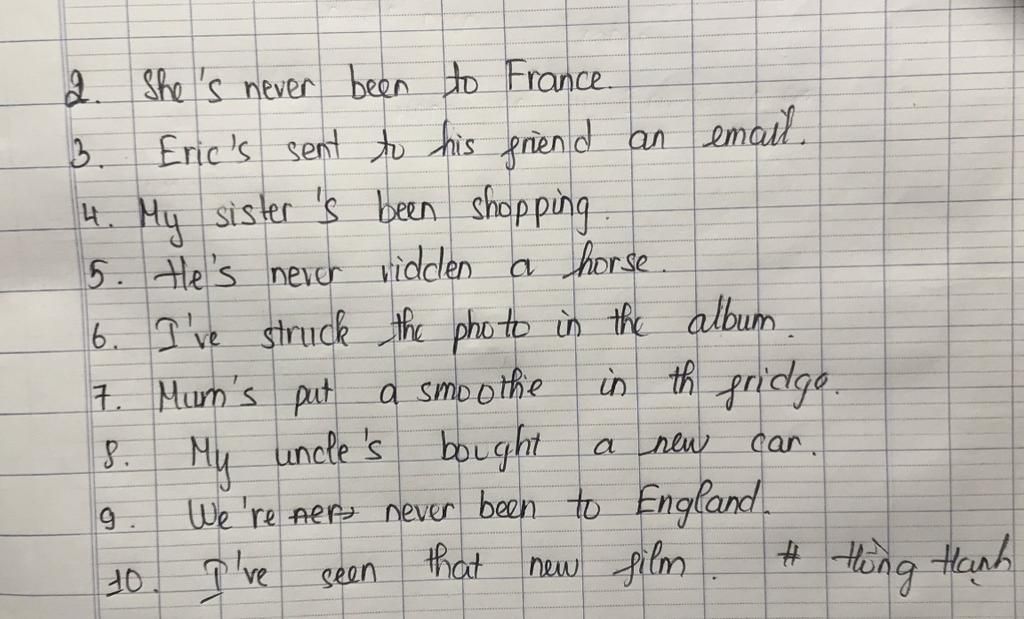 2. She's never been to France.
3. Eric's sent to his friend an email.
4. My sister's been shopping.
5. He's never ridden a horse.
6. I've struck the photo in the album.
7. Mum's put a smoothie in th fridge.
8. My uncle's bought a new car.
9. We're never been to England.
10. I've seen that new film. # Hồng Hạnh